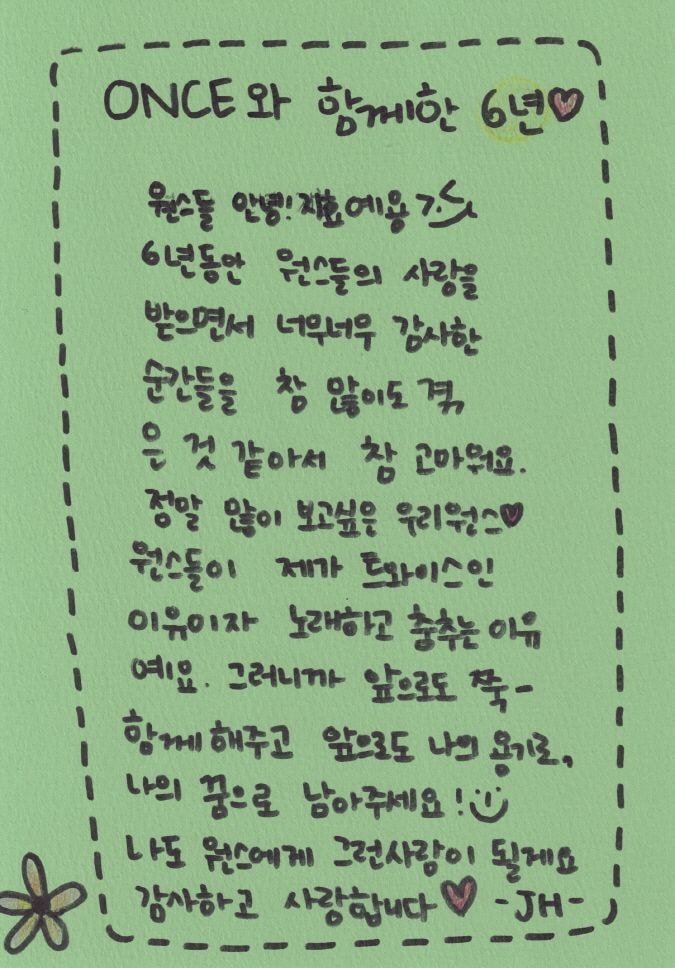 ONCE와 함께한 6년♥
원스들 안녕! 지효예용
6년동안 원스들의 사랑을
받으면서 너무너무 감사한
순간들을 참 많이도 겪
은 것 같아서 참 고마워요.
정말 많이 보고싶은 우리원스♥
원스들이 제가 트와이스인
이유이자 노래하고 춤추는 이유
예요. 그러니까 앞으로도 쭉-
함께 해주고 앞으로도 나의 용기로,
나의 꿈으로 남아주세요!
나도 원스에게 그런사람이 될게요
감사하고 사랑합니다♥ -JH-